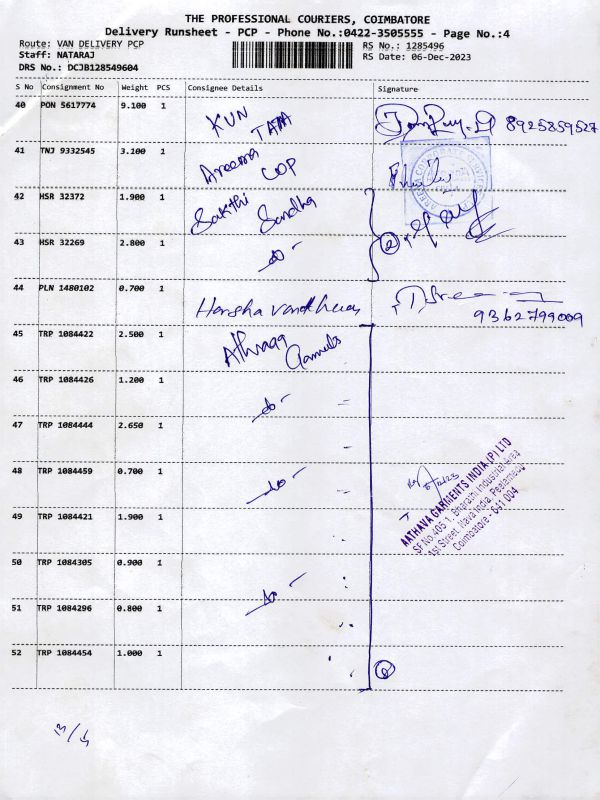 THE PROFESSIONAL COURIERS, COIMBATORE
Delivery Runsheet - PCP - Phone No.:0422-3505555 - Page No.:4
Route: VAN DELIVERY PCP
Staff: NATARAJ
DRS No.: DCJB128549604
RS No.: 1285496
RS Date: 06-Dec-2023
S No Consignment No Weight PCS Consignee Details Signature
40 PON 5617774 9.100 1 KUN TATA 8925859527
41 TNJ 9332545 3.100 1 COP
42 HSR 32372 1.900 1 Sakthi
43 HSR 32269 2.800 1 do
44 PLN 1480102 0.700 1 Harsha 9362799009
45 TRP 1084422 2.500 1
46 TRP 1084426 1.200 1 do
47 TRP 1084444 2.650 1
48 TRP 1084459 0.700 1 do
49 TRP 1084421 1.900 1
50 TRP 1084305 0.900 1 do
51 TRP 1084296 0.800 1
52 TRP 1084454 1.000 1
AATHAVA GARMENTS INDIA (P) LTD
SF No.405 1, Bharathi Industrial Area
1st Street, Nava India, Peelamedu
Coimbatore - 641 004